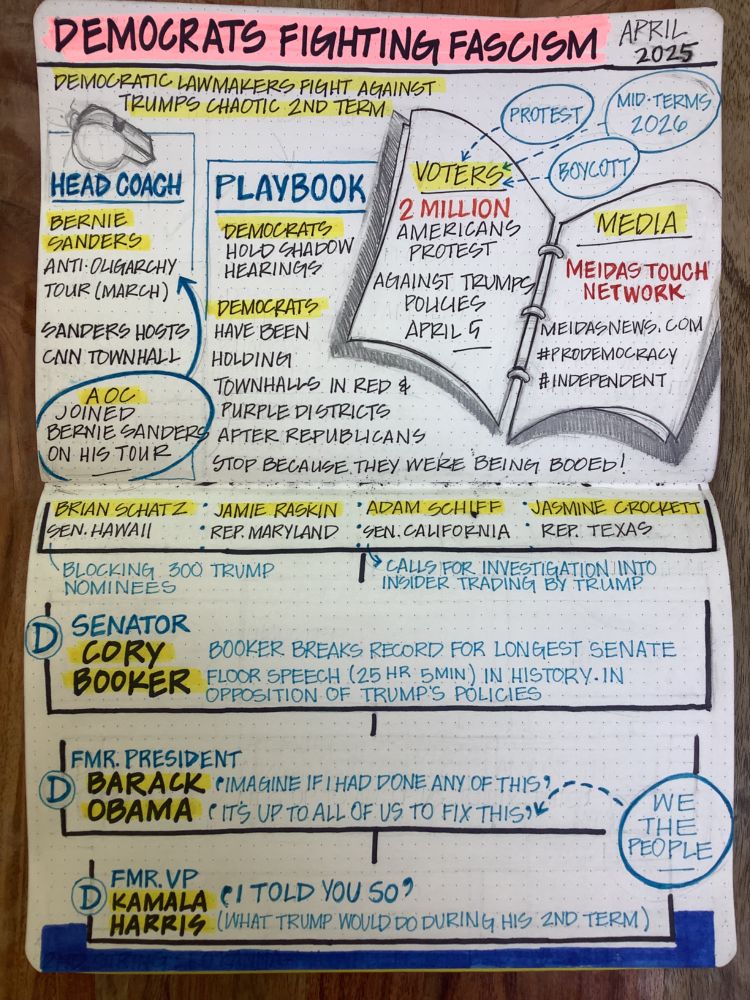 DEMOCRATS FIGHTING FASCISM
APRIL
2025
DEMOCRATIC LAWMAKERS FIGHT AGAINST
TRUMPS CHAOTIC 2ND TERM
HEAD COACH
BERNIE
SANDERS
ANTI-OLIGARCHY
TOUR (MARCH)
SANDERS HOSTS
CNN TOWNHALL
AOC
JOINED
BERNIE SANDERS
ON HIS TOUR
PLAYBOOK
DEMOCRATS
HOLD SHADOW
HEARINGS
DEMOCRATS
HAVE BEEN
HOLDING
TOWNHALLS IN RED &
PURPLE DISTRICTS
AFTER REPUBLICANS
STOP BECAUSE THEY WERE BEING BOOED!
PROTEST
MID-TERMS
2026
BOYCOTT
VOTERS
2 MILLION
AMERICANS
PROTEST
AGAINST TRUMPS
POLICIES
APRIL 5
MEDIA
MEIDASTOUCH
NETWORK
MEIDASNEWS.COM
#PRODEMOCRACY
#INDEPENDENT
BRIAN SCHATZ
SEN. HAWAII
JAMIE RASKIN
REP. MARYLAND
ADAM SCHIFF
SEN. CALIFORNIA
JASMINE CROCKETT
REP. TEXAS
BLOCKING 300 TRUMP
NOMINEES
CALLS FOR INVESTIGATION INTO
INSIDER TRADING BY TRUMP
D
SENATOR
CORY
BOOKER
BOOKER BREAKS RECORD FOR LONGEST SENATE
FLOOR SPEECH (25 HR 5MIN) IN HISTORY. IN
OPPOSITION OF TRUMP'S POLICIES
FMR. PRESIDENT
D
BARACK
OBAMA
"IMAGINE IF I HAD DONE ANY OF THIS"
"IT'S UP TO ALL OF US TO FIX THIS"
WE
THE
PEOPLE
D
FMR. VP
KAMALA
HARRIS
"I TOLD YOU SO"
(WHAT TRUMP WOULD DO DURING HIS 2ND TERM)